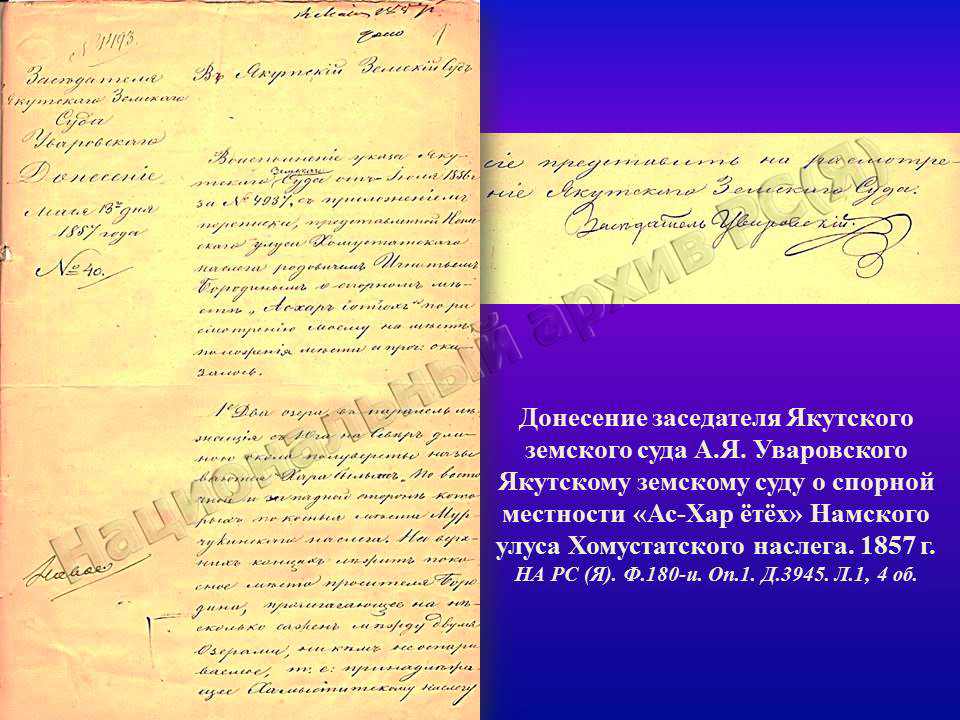 № 4493.
Заседателя
Якутскаго Земскаго
Суда
Уваровскаго
Донесеніе
Мая 13го дня
1857 года
№ 40.
1
Въ Якутскій Земскій Судъ
Воисполненіе указа Яку-
тскаго Земскаго Суда отъ Іюля 1856 г.
за № 4937. съ приложеніемъ
переписки, представленной Нам-
скаго улуса Хомустатскаго
наслега родовичемъ Игнатьемъ
Бородинымъ о спорномъ мѣ-
стѣ „Асхаръ ётёхъ" по ра-
смотренію моему на мѣстѣ
положенія мѣста и проч: ока-
залось.
1е Два озера, въ паралель ле-
жащія съ Юга на Северъ длин-
ною около полуверсты назы-
ваются Хара былыхъ. По восто-
чной и западной сторонъ кото-
рыхъ покосныя мѣста Мур-
чукинскаго наслега. На верх-
нихъ концахъ лежитъ поко-
сное мѣсто просителя Боро-
дина, пролагающее на нѣ-
сколько саженъ между двумя
Озерами, никемъ неоспари-
ваемое, т: е: принадлежа-
щее Хамыститскому наслегу
сіе представить на расмотре-
ніе Якутскаго Земскаго Суда.
Заседатель Уваровскій.
Национальный архив РС(Я)
Донесение заседателя Якутского
земского суда А.Я. Уваровского
Якутскому земскому суду о спорной
местности «Ас-Хар ётёх» Намского
улуса Хомустатского наслега. 1857 г.
НА РС (Я). Ф.180-и. Оп.1. Д.3945. Л.1, 4 об.